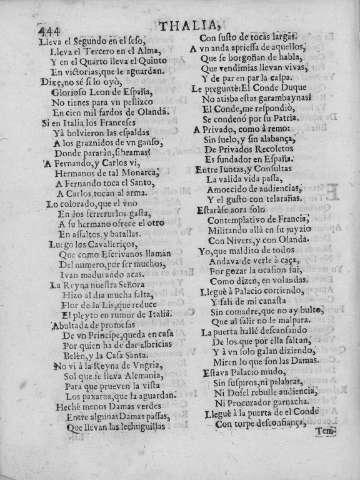 444
THALIA,
Lleva el Segundo en el seso,
Lleva el Tercero en el Alma,
Y en el Quarto lleva el Quinto
En victorias, que le aguardan.
Dixe, no sé si lo oyò,
Glorioso Leon de España,
No tienes para vn pellizco
En cien mil fardos de Olandà.
Si en Italia los Franceses
Yà bolvieron las espaldas
A los graznidos de vn ganso,
Donde pararàn,
A Fernando, y Carlos vi,
Hermanos de tal Monarca,
A Fernando toca el Santo,
A Carlos, tocan al arma.
Lo colorado, que el vno
En los ferreruelos gasta,
A su hermano ofrece el otro
En assaltos, y batallas.
Luego los Cavalleriços,
Que como Escrivanos llaman
Del numero, por ser muchos,
Ivan madurando acas.
La Reyna nuestra Señora
Hizo al dia mucha falta,
Flor de la Lis, que reduce
El pleyto en rumor de Italia.
Abultada de promesas
De vn Principe, queda en casa
Por quien ha de dar albricias
Belèn, y la Casa Santa.
No vi à la Reyna de Vngria,
Sol que se lleva Alemania,
Para que prueven la vista
Los paxaros, que la aguardan.
Hechè menos Damas verdes
Entre algunas Damas passas,
Que llevan las lechuguillas
Con susto de tocas largas.
A vn anda apriessa de aquellos,
Que se borgoñan de habla,
Que vendimias llevan vivas,
Y de par en par la caspa.
Le preguntè: El Conde Duque
No atisba estas garambaynas?
El Conde, me respondiò,
Se condenò por su Patria.
A Privado, como à remo:
Sin sueło, y sin alabança,
De Privados Recoletos
Es fundador en España.
Entre Iuntas, y Consultas
La valida vida passa,
Amocecido de audiencias,
Y el gusto con telarañas.
Estaràse aora solo
Contemplativo de Francia,
Militando allà en su juyzio
Con Nivers, y con Olanda.
Yo, que maldito de todos
Andava de verle à caça,
Por gozar la ocasion fui,
Como dizen, en volandas.
Lleguè à Palacio corriendo,
Y salì de mi canasta
Sin comadre, que no ay bulto,
Que al salir no le malpara.
La puerta hallè descansando
De los que por ella saltan,
Y à vn solo galan diziendo,
Miren lo que son las Damas.
Estava Palacio mudo,
Sin suspiros, ni palabras,
Ni Dosel rebulle audiencia,
Ni Procurador garnacha.
Lleguè à la puerta de el Conde
Con torpe desconfiança,
Tem-